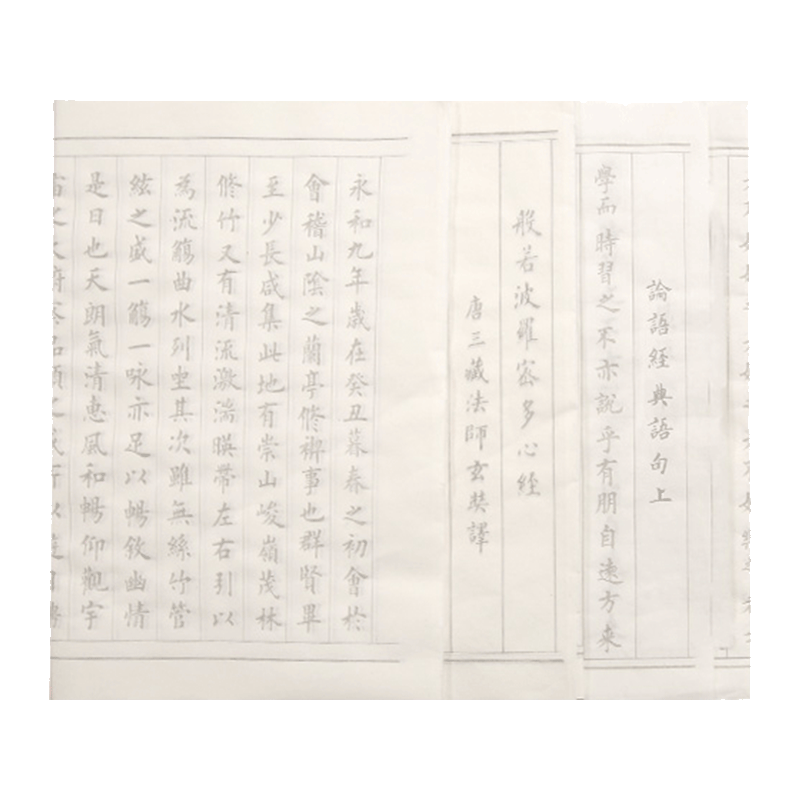 論語經典語句上
學而時習之不亦說乎有朋自遠方來
般若波羅密多心經
唐三藏法師玄奘譯
永和九年歲在癸丑暮春之初會於
會稽山陰之蘭亭修禊事也群賢畢
至少長咸集此地有崇山峻嶺茂林
修竹又有清流激湍暎帶左右引以
為流觴曲水列坐其次雖無絲竹管
絃之盛一觴一詠亦足以暢敘幽情
是日也天朗氣清惠風和暢仰觀宇